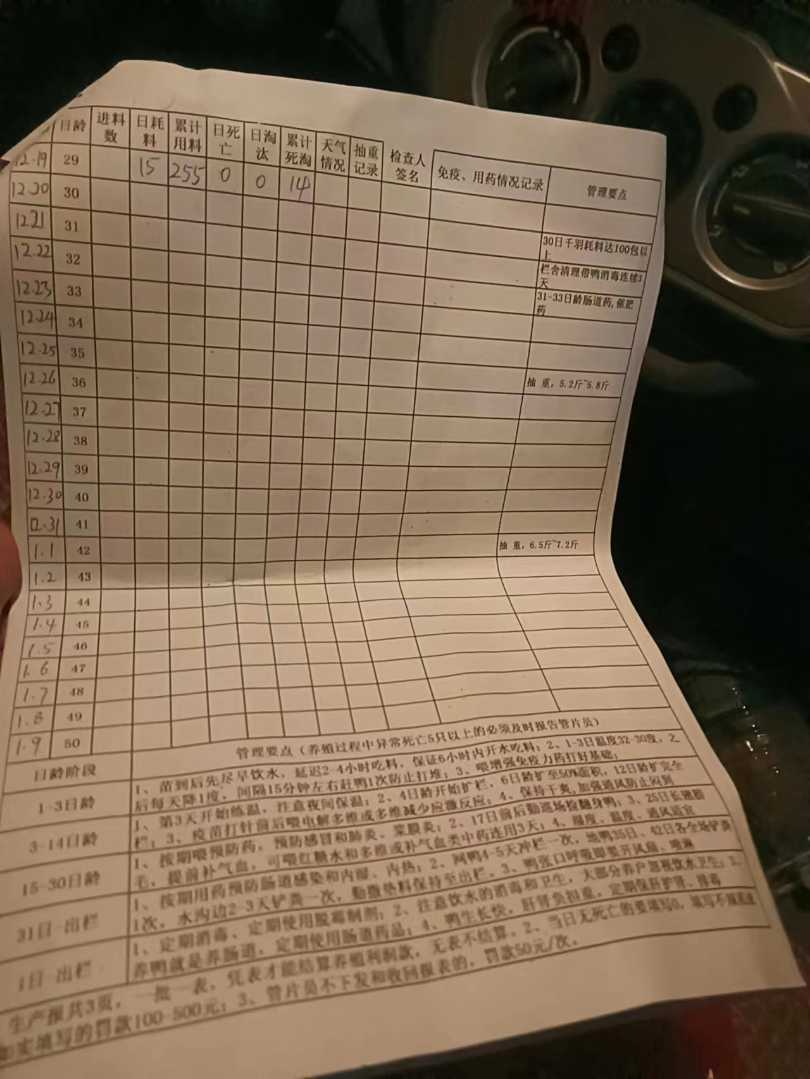 日龄 进料数 日耗料 累计用料 日死亡 日淘汰 累计死淘 天气情况 抽重记录 检查人签名 免疫、用药情况记录 管理要点
12.19 29 15 255 0 0 14
12.20 30
12.21 31 30日千羽耗料达100包以上
12.22 32 栏舍清理带鸭消毒连续3天
12.23 33 31-33日龄肠道药,催肥药
12.24 34
12.25 35
12.26 36 抽 重,5.2斤~5.8斤
12.27 37
12.28 38
12.29 39
12.30 40
12.31 41
1.1 42 抽 重,6.5斤~7.2斤
1.2 43
1.3 44
1.4 45
1.5 46
1.6 47
1.7 48
1.8 49
1.9 50
日龄阶段 管理要点(养殖过程中异常死亡5只以上的必须及时报告管片员)
1-3日龄 1、苗到后先尽早饮水,延迟2-4小时吃料,保证6小时内开水吃料;2、1-3日温度32-30度,之
后每天降1度,间隔15分钟左右赶鸭1次防止打堆;3、喂增强免疫力药打好基础;
3-14日龄 1、第3天开始炼温,注意夜间保温;2、4日龄开始扩栏,6日龄扩至50%面积,12日龄扩完全
栏;3、疫苗打针前后喂电解多维或多维减少应激反应;4、保持干爽,加强通风防止闷到
15-30日龄 1、按期喂预防药,预防感冒和肺炎、浆膜炎;2、17日前后勤巡场检翻身鸭;3、25日长翅脂
毛,提前补气血,可喂红糖水和多维或补气血类中药连用3天;4、湿度、温度、通风适宜
31日-出栏 1、按期用药预防肠道感染和内毒、内热;2、网鸭4-5天冲栏一次,地鸭35日、42日各全场铲粪
1次,水沟边2-3天铲粪一次,勤撒垫料保持至出栏。3、鸭张口呼吸即要开风扇、喷淋
1日-出栏 1、定期消毒、定期使用脱霉制剂;2、注意饮水的消毒和卫生,大部分养户忽视饮水卫生;3、
养鸭就是养肠道,定期使用肠道药品;4、鸭生长快,肝肾负担重,定期保肝护肾、排毒
生产报共3页,一批一表,凭表才能结算养殖利润款,无表不结算。2、当日无死亡的要填写0,填写不规范或
如实填写的罚款100-500元;3、管片员不下发和收回报表的,罚款50元/次。